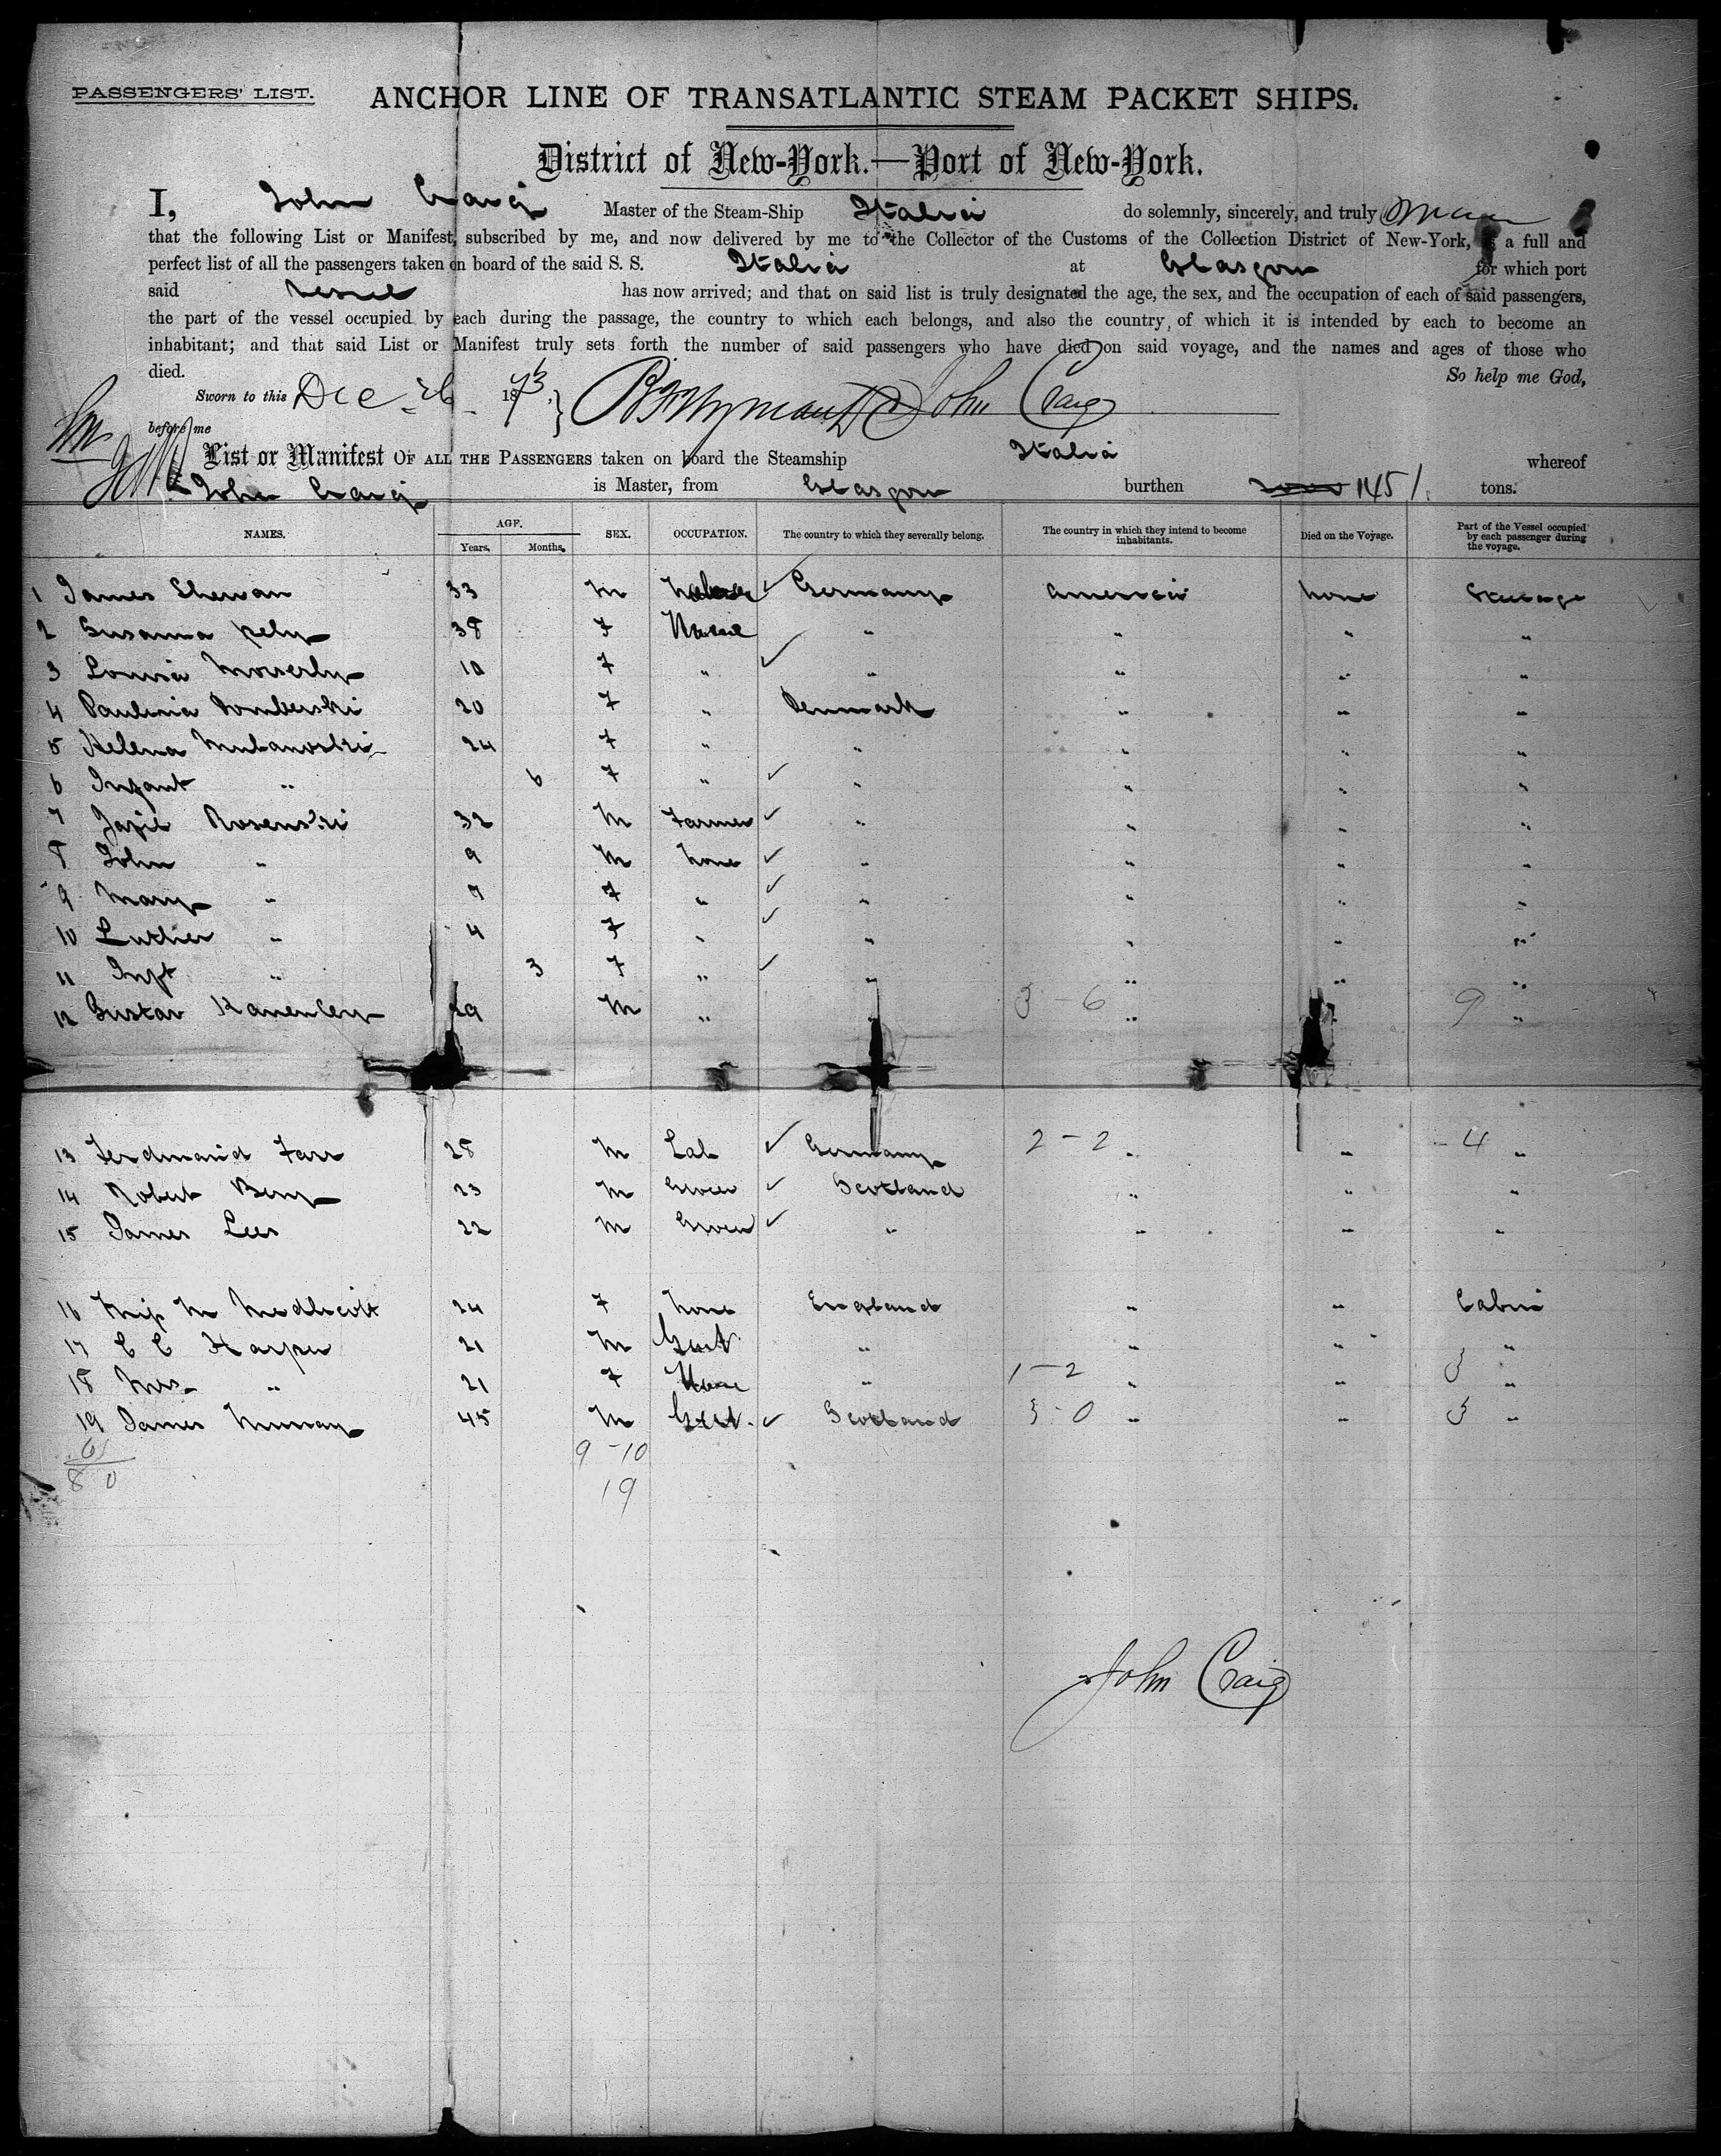 PASSENGERS' LIST. ANCHOR LINE OF TRANSATLANTIC STEAM PACKET SHIPS.
District of New-York.—Port of New-York.
I, John Craig Master of the Steam-Ship Italia do solemnly, sincerely, and truly Swear
that the following List or Manifest, subscribed by me, and now delivered by me to the Collector of the Customs of the Collection District of New-York, is a full and
perfect list of all the passengers taken on board of the said S. S. Italia at Glasgow for which port
said Vessel has now arrived; and that on said list is truly designated the age, the sex, and the occupation of each of said passengers,
the part of the vessel occupied by each during the passage, the country to which each belongs, and also the country, of which it is intended by each to become an
inhabitant; and that said List or Manifest truly sets forth the number of said passengers who have died on said voyage, and the names and ages of those who
died. So help me God,
Sworn to this Dec 26 1873. John Craig
before me
List or Manifest OF ALL THE PASSENGERS taken on board the Steamship Italia whereof
John Craig is Master, from Glasgow burthen 1451 tons.
NAMES. AGE. Years. Months. SEX. OCCUPATION. The country to which they severally belong. The country in which they intend to become inhabitants. Died on the Voyage. Part of the Vessel occupied by each passenger during the voyage.
1 James 33 M Germany America none Steerage
2 Susanna 38 F None " " " "
3 Louisa 10 F " " " " "
4 Paulina 20 F " Denmark " " "
5 Helena 24 F " " " " "
6 Infant " 6 F " " " " "
7 Rosenski 32 M Farmer " " " "
8 John " 9 M none " " " "
9 Mary " 7 F " " " " "
10 Luther " 4 F " " " " "
11 Inft " 3 F " " " " "
12 Gustav 29 M " " 3-6 " " 9 "
13 Ferdinand Farr 28 M Lab Germany 2-2 " " 4 "
14 Robert 23 M Grocer Scotland " " "
15 James Lees 22 M Grocer " " " "
16 Miss M Medlicott 24 F none England " " Cabin
17 C C Harper 21 M Gent " " " "
18 Mrs " 21 F None " 1-2 " " 3 "
19 James Murray 45 M Gent. Scotland 3-0 " " 3 "
61 9-10
80 19
John Craig